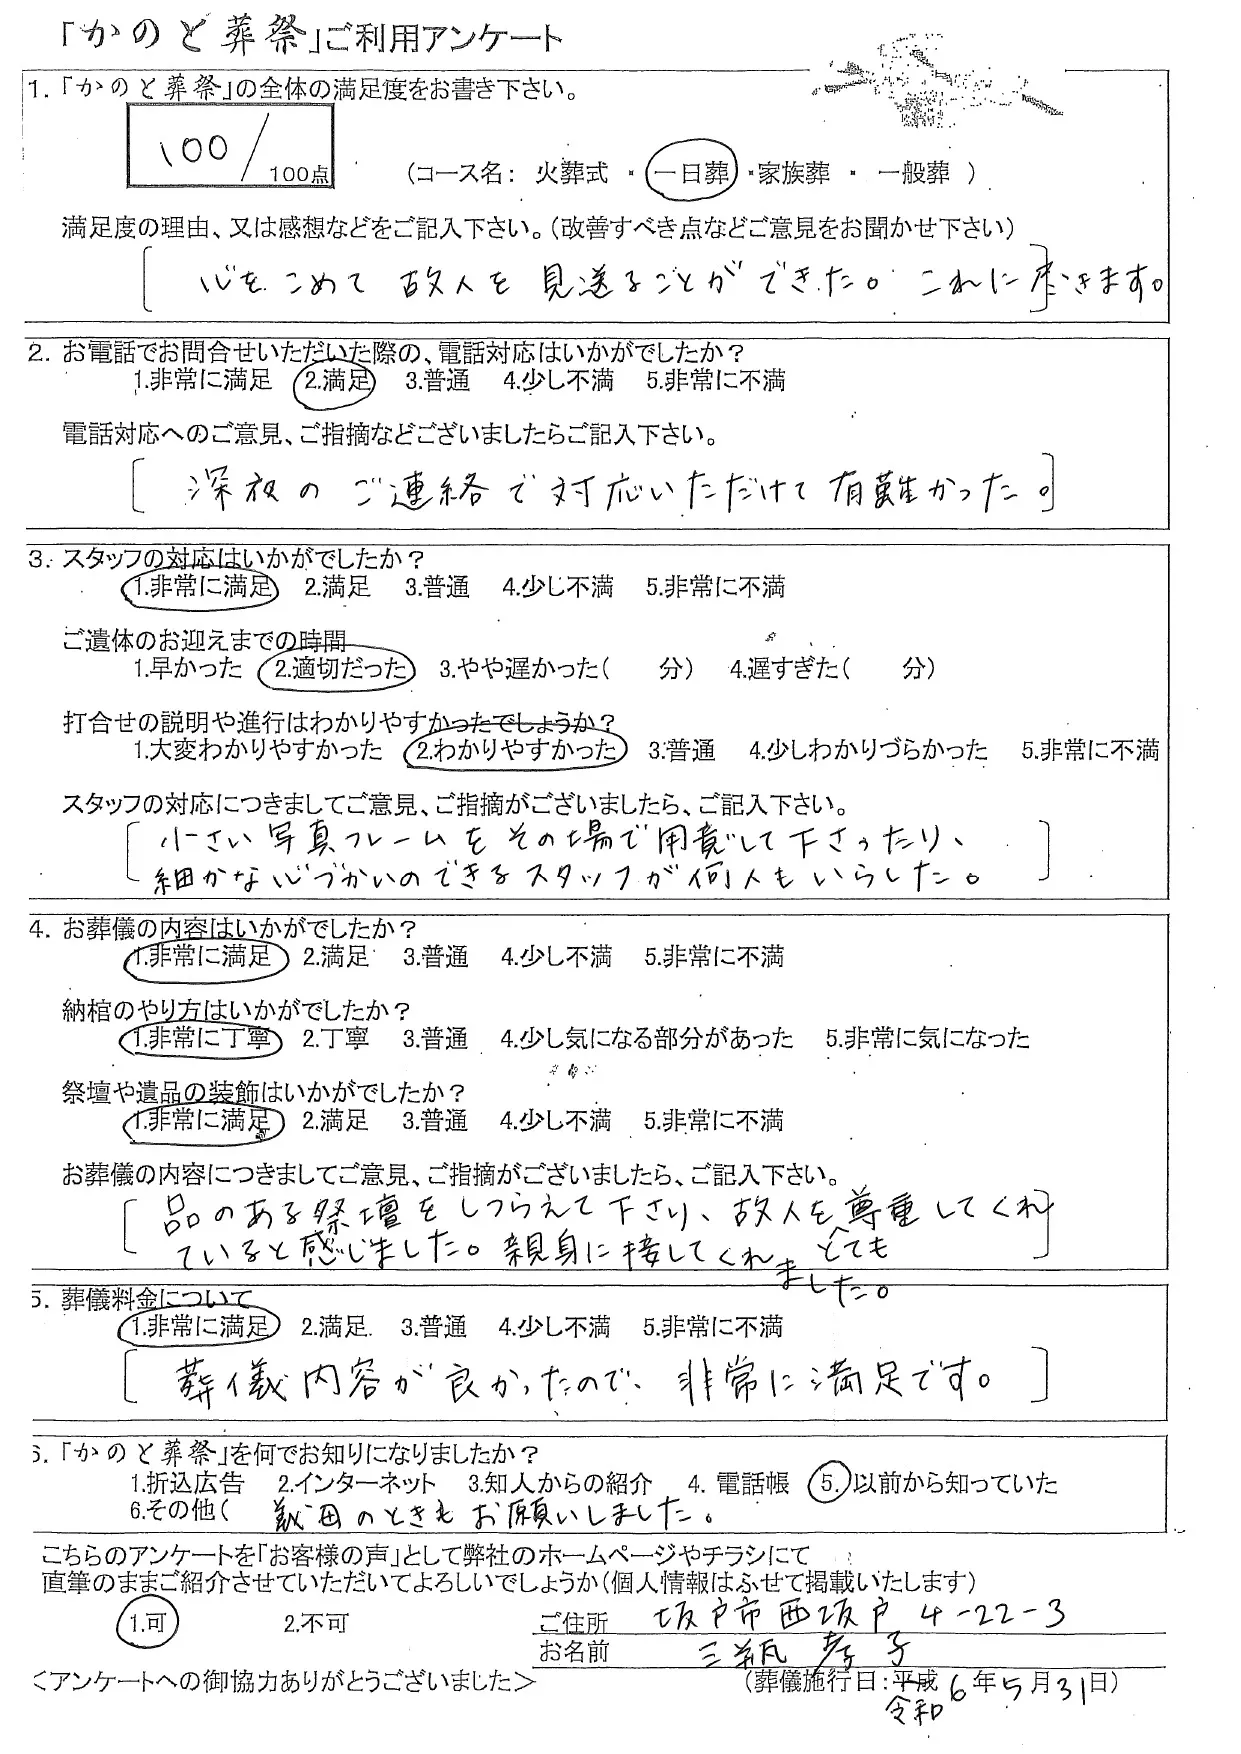 「かのと葬祭」ご利用アンケート
1. 「かのと葬祭」の全体の満足度をお書き下さい。
100/100点 (コース名: 火葬式 ・ 一日葬 ・家族葬 ・ 一般葬 )
満足度の理由、又は感想などをご記入下さい。(改善すべき点などご意見をお聞かせ下さい)
[ 心をこめて 故人を 見送ることが できた。 これに尽きます。]
2. お電話でお問合せいただいた際の、電話対応はいかがでしたか?
1.非常に満足 2.満足 3.普通 4.少し不満 5.非常に不満
電話対応へのご意見、ご指摘などございましたらご記入下さい。
[ 深夜の ご連絡で対応いただけて有難かった。]
3. スタッフの対応はいかがでしたか?
1.非常に満足 2.満足 3.普通 4.少し不満 5.非常に不満
ご遺体のお迎えまでの時間
1.早かった 2.適切だった 3.やや遅かった( 分) 4.遅すぎた( 分)
打合せの説明や進行はわかりやすかったでしょうか?
1.大変わかりやすかった 2.わかりやすかった 3.普通 4.少しわかりづらかった 5.非常に不満
スタッフの対応につきましてご意見、ご指摘がございましたら、ご記入下さい。
[ 小さい写真フレームをその場で用意して下さったり、
細かな心づかいのできるスタッフが何人もいらした。 ]
4. お葬儀の内容はいかがでしたか?
1.非常に満足 2.満足 3.普通 4.少し不満 5.非常に不満
納棺のやり方はいかがでしたか?
1.非常に丁寧 2.丁寧 3.普通 4.少し気になる部分があった 5.非常に気になった
祭壇や遺品の装飾はいかがでしたか?
1.非常に満足 2.満足 3.普通 4.少し不満 5.非常に不満
お葬儀の内容につきましてご意見、ご指摘がございましたら、ご記入下さい。
[ 品のある祭壇をしつらえて下さり、故人を尊重してくれ
ていると感じました。親身に接してくれ とても
ました。 ]
5. 葬儀料金について
1.非常に満足 2.満足 3.普通 4.少し不満 5.非常に不満
[ 葬儀内容が良かったので、非常に満足です。 ]
6. 「かのと葬祭」を何でお知りになりましたか?
1.折込広告 2.インターネット 3.知人からの紹介 4. 電話帳 5.以前から知っていた
6.その他( 義母のときもお願いしました。
こちらのアンケートを「お客様の声」として弊社のホームページやチラシにて
直筆のままご紹介させていただいてよろしいでしょうか(個人情報はふせて掲載いたします)
1.可 2.不可 ご住所 坂戸市西坂戸 4-22-3
お名前 三瓶 孝子
<アンケートへの御協力ありがとうございました> (葬儀施行日:平成 6年5月31日)
令和